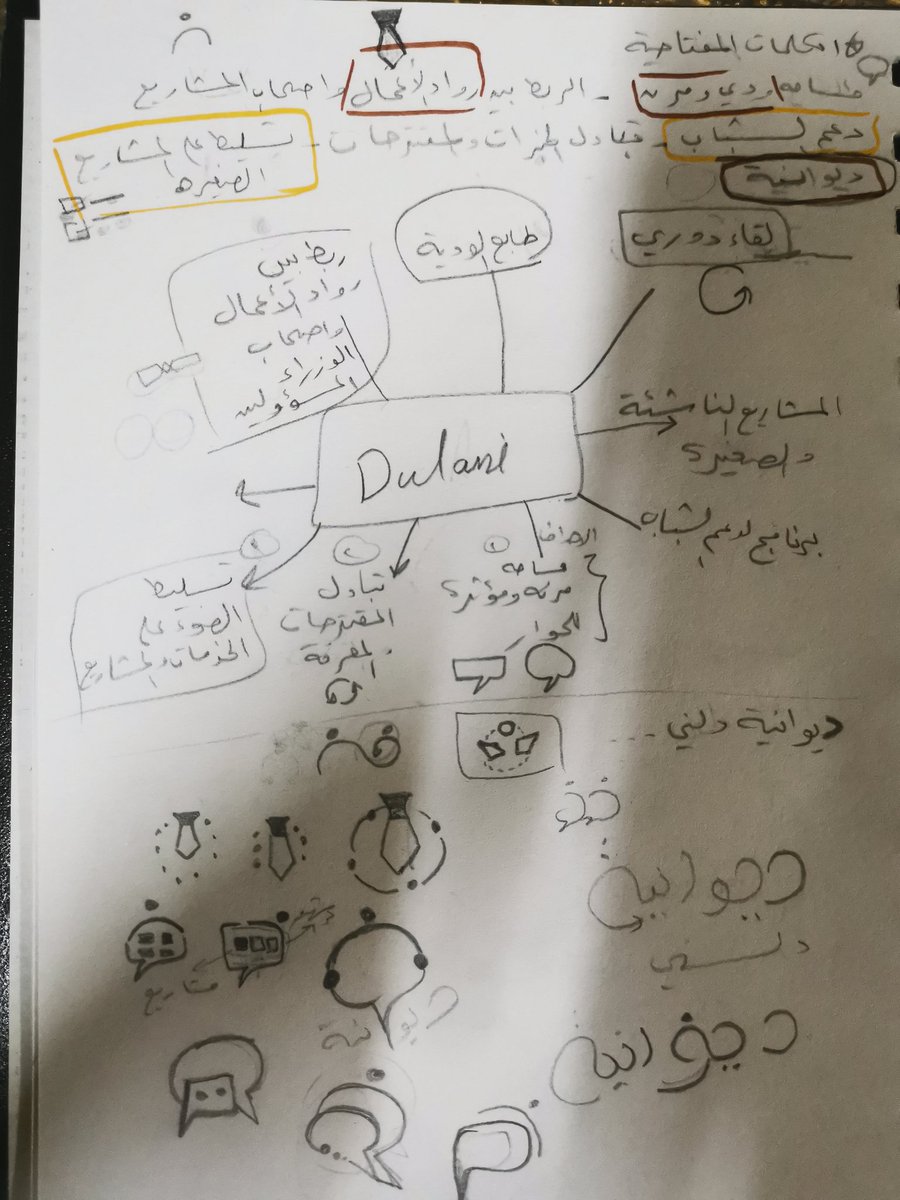 الكلمات المفتاحية
ودي ومرن - الربط بين رواد الأعمال واصحاب المشاريع
دعم الشباب - تبادل الخبرات والمقترحات - تسليط على المشاريع
الصغيره
ديوانية
لقاء دوري
طابع الودية
ربط بين
رواد الأعمال
واصحاب
الوزراء
المسؤولين
Dulani
المشاريع الناشئة
والصغيرة
برنامج لدعم الشباب
الاهداف
مساحه
مرنه ومؤثرة
للحوار
تبادل
المقترحات
المعرفة
تسليط
الضوء على
الخدمات والمشاريع
ديوانية دلني ...
ديوانية
دلني
مشاريع
ديوانية
ديوانية